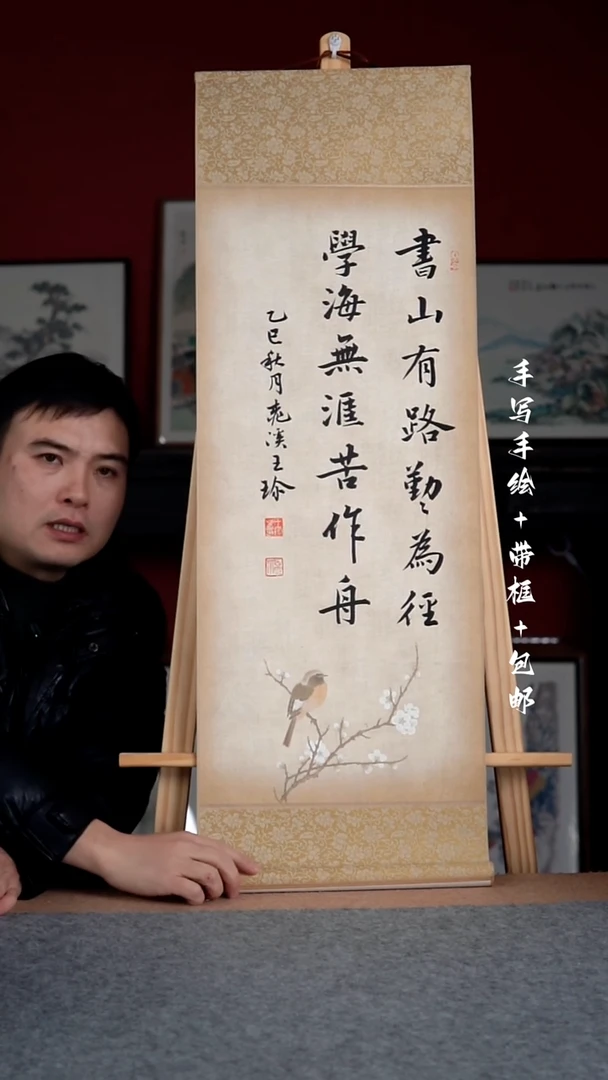 書山有路勤為徑
學海無涯苦作舟
乙巳秋月堯溪王珍
手写手绘+带框+包邮